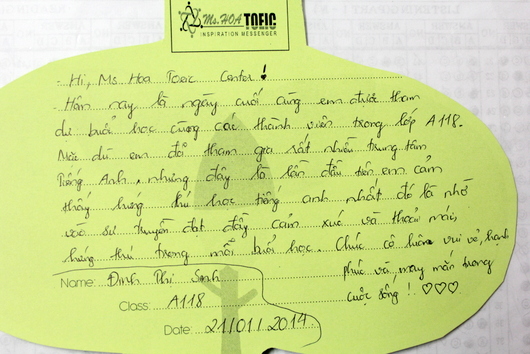 Ms.HOA TOEIC
INSPIRATION MESSENGER
Hi, Ms Hoa Toeic Center!
Hôm nay là ngày cuối cùng em được tham
dự buổi học cùng các thành viên trong lớp A118.
Mặc dù em đã tham gia rất nhiều trung tâm
Tiếng Anh, nhưng đây là lần đầu tiên em cảm
thấy hứng thú học tiếng anh nhất đó là nhờ
vào sự truyền đạt đầy cảm xúc và thoải mái,
hứng thú trong mỗi buổi học. Chúc cô luôn vui vẻ, hạnh
phúc và may mắn trong
cuộc sống! ♡♡♡
Name: Đinh Thị Sanh
Class: A118
Date: 21/01/2014